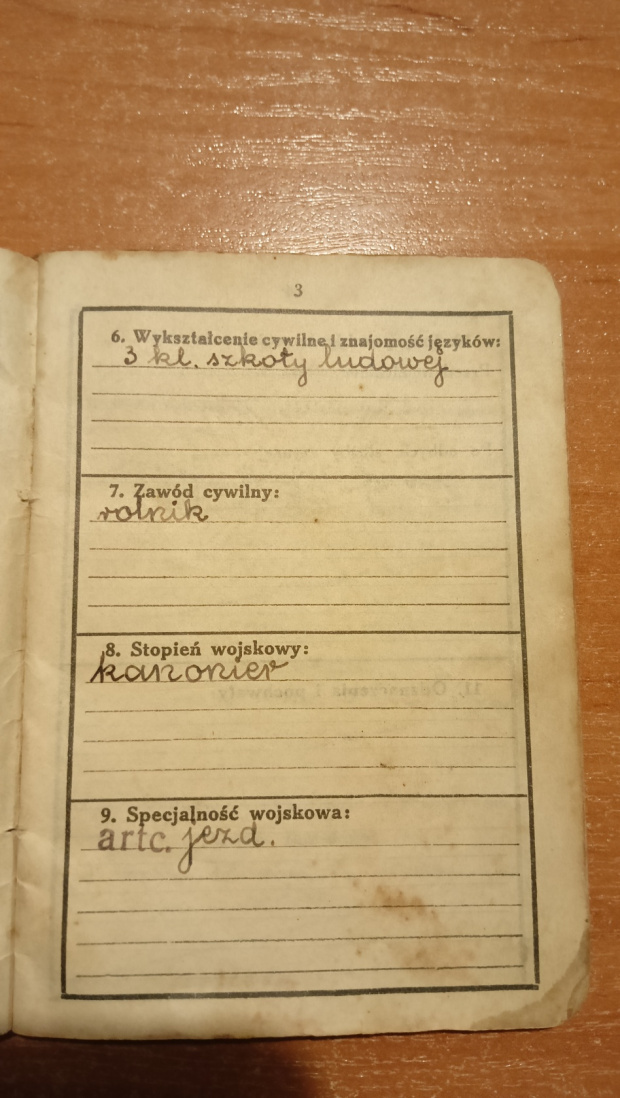 3
6. Wykształcenie cywilne i znajomość języków:
3 kl. szkoły ludowej
7. Zawód cywilny:
rolnik
8. Stopień wojskowy:
kanonier
11. Odznaczenia i pochwały:
9. Specjalność wojskowa:
artc. jezd.